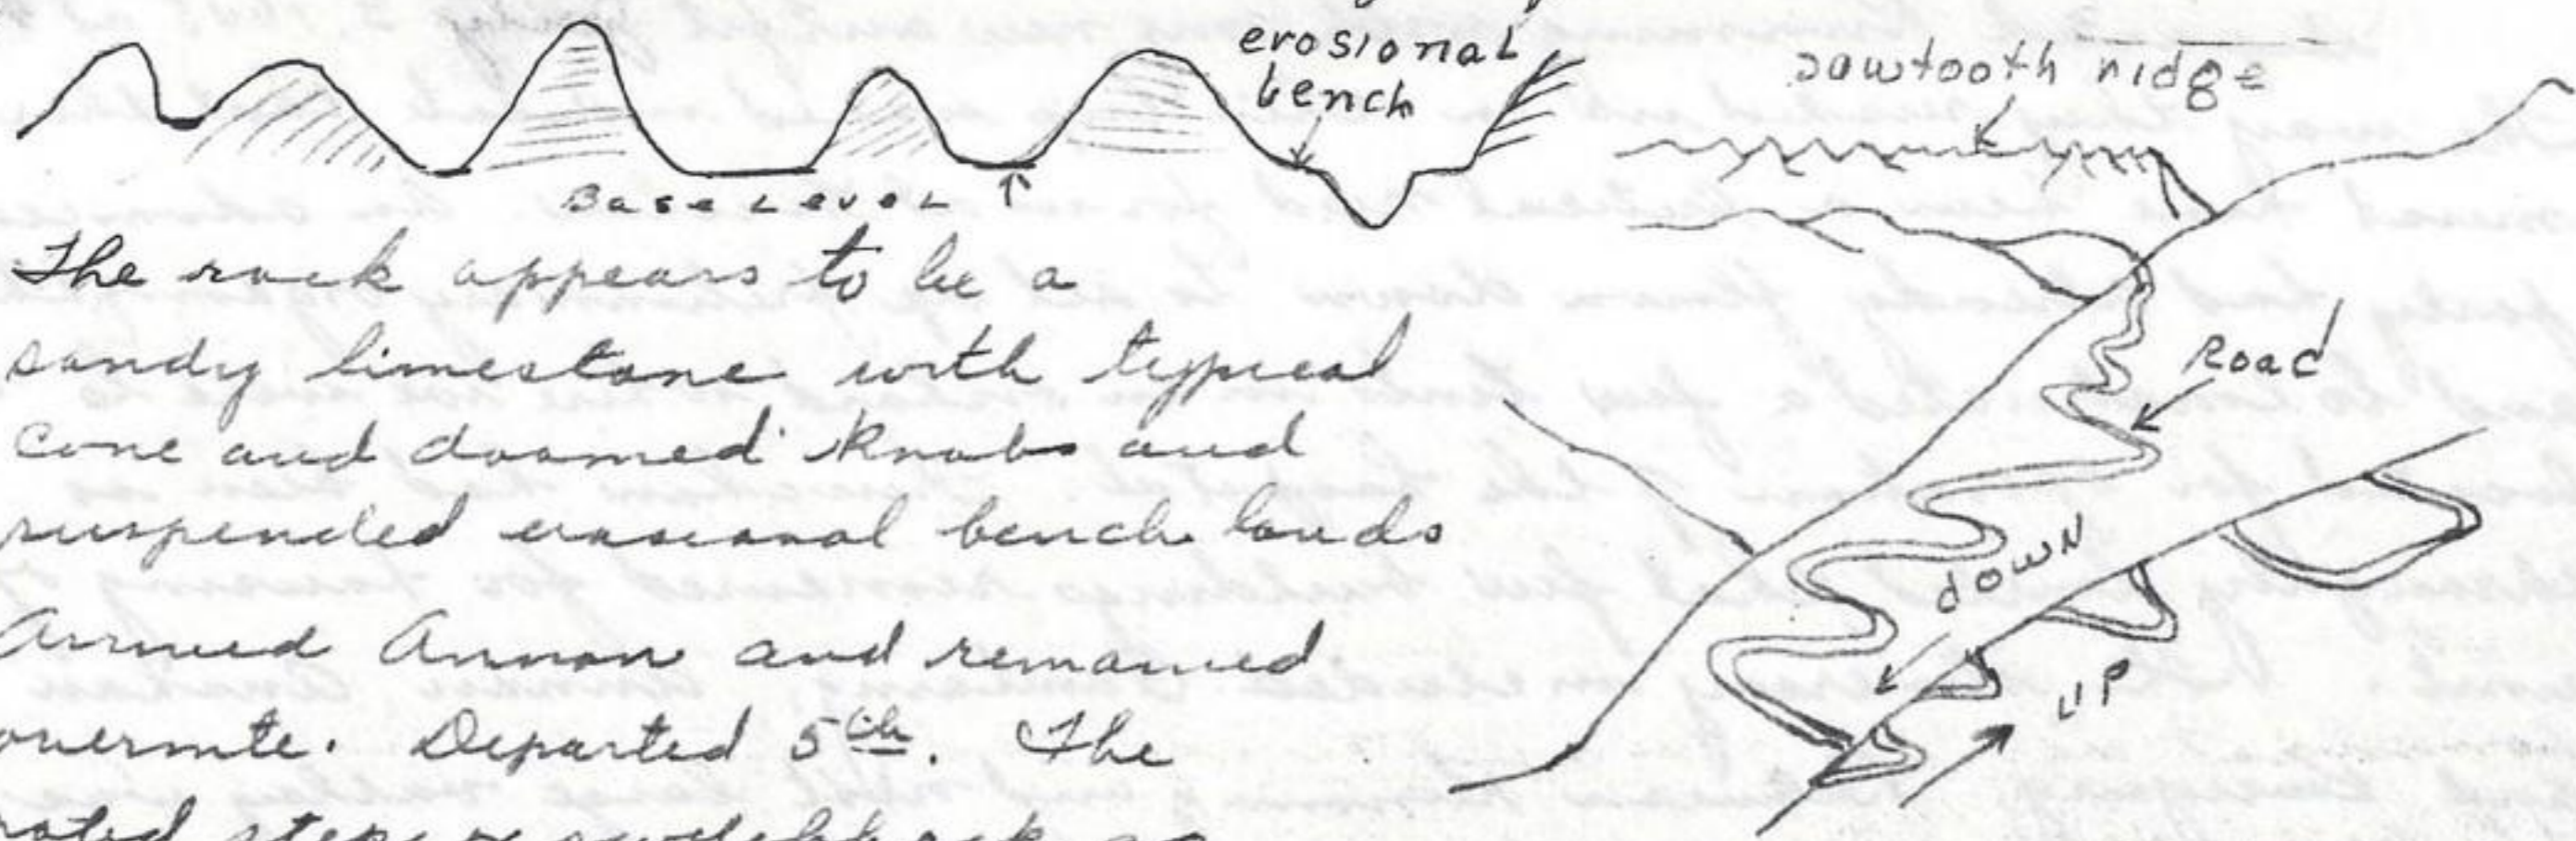 erosional
bench
sawtooth ridge
Base Level
Road
down
UP
The rock appears to be a
sandy limestone with typical
cone and doomed knobs and
suspended erosional bench lands
Arrived Annan and remained
overnite. Departed 5th. The